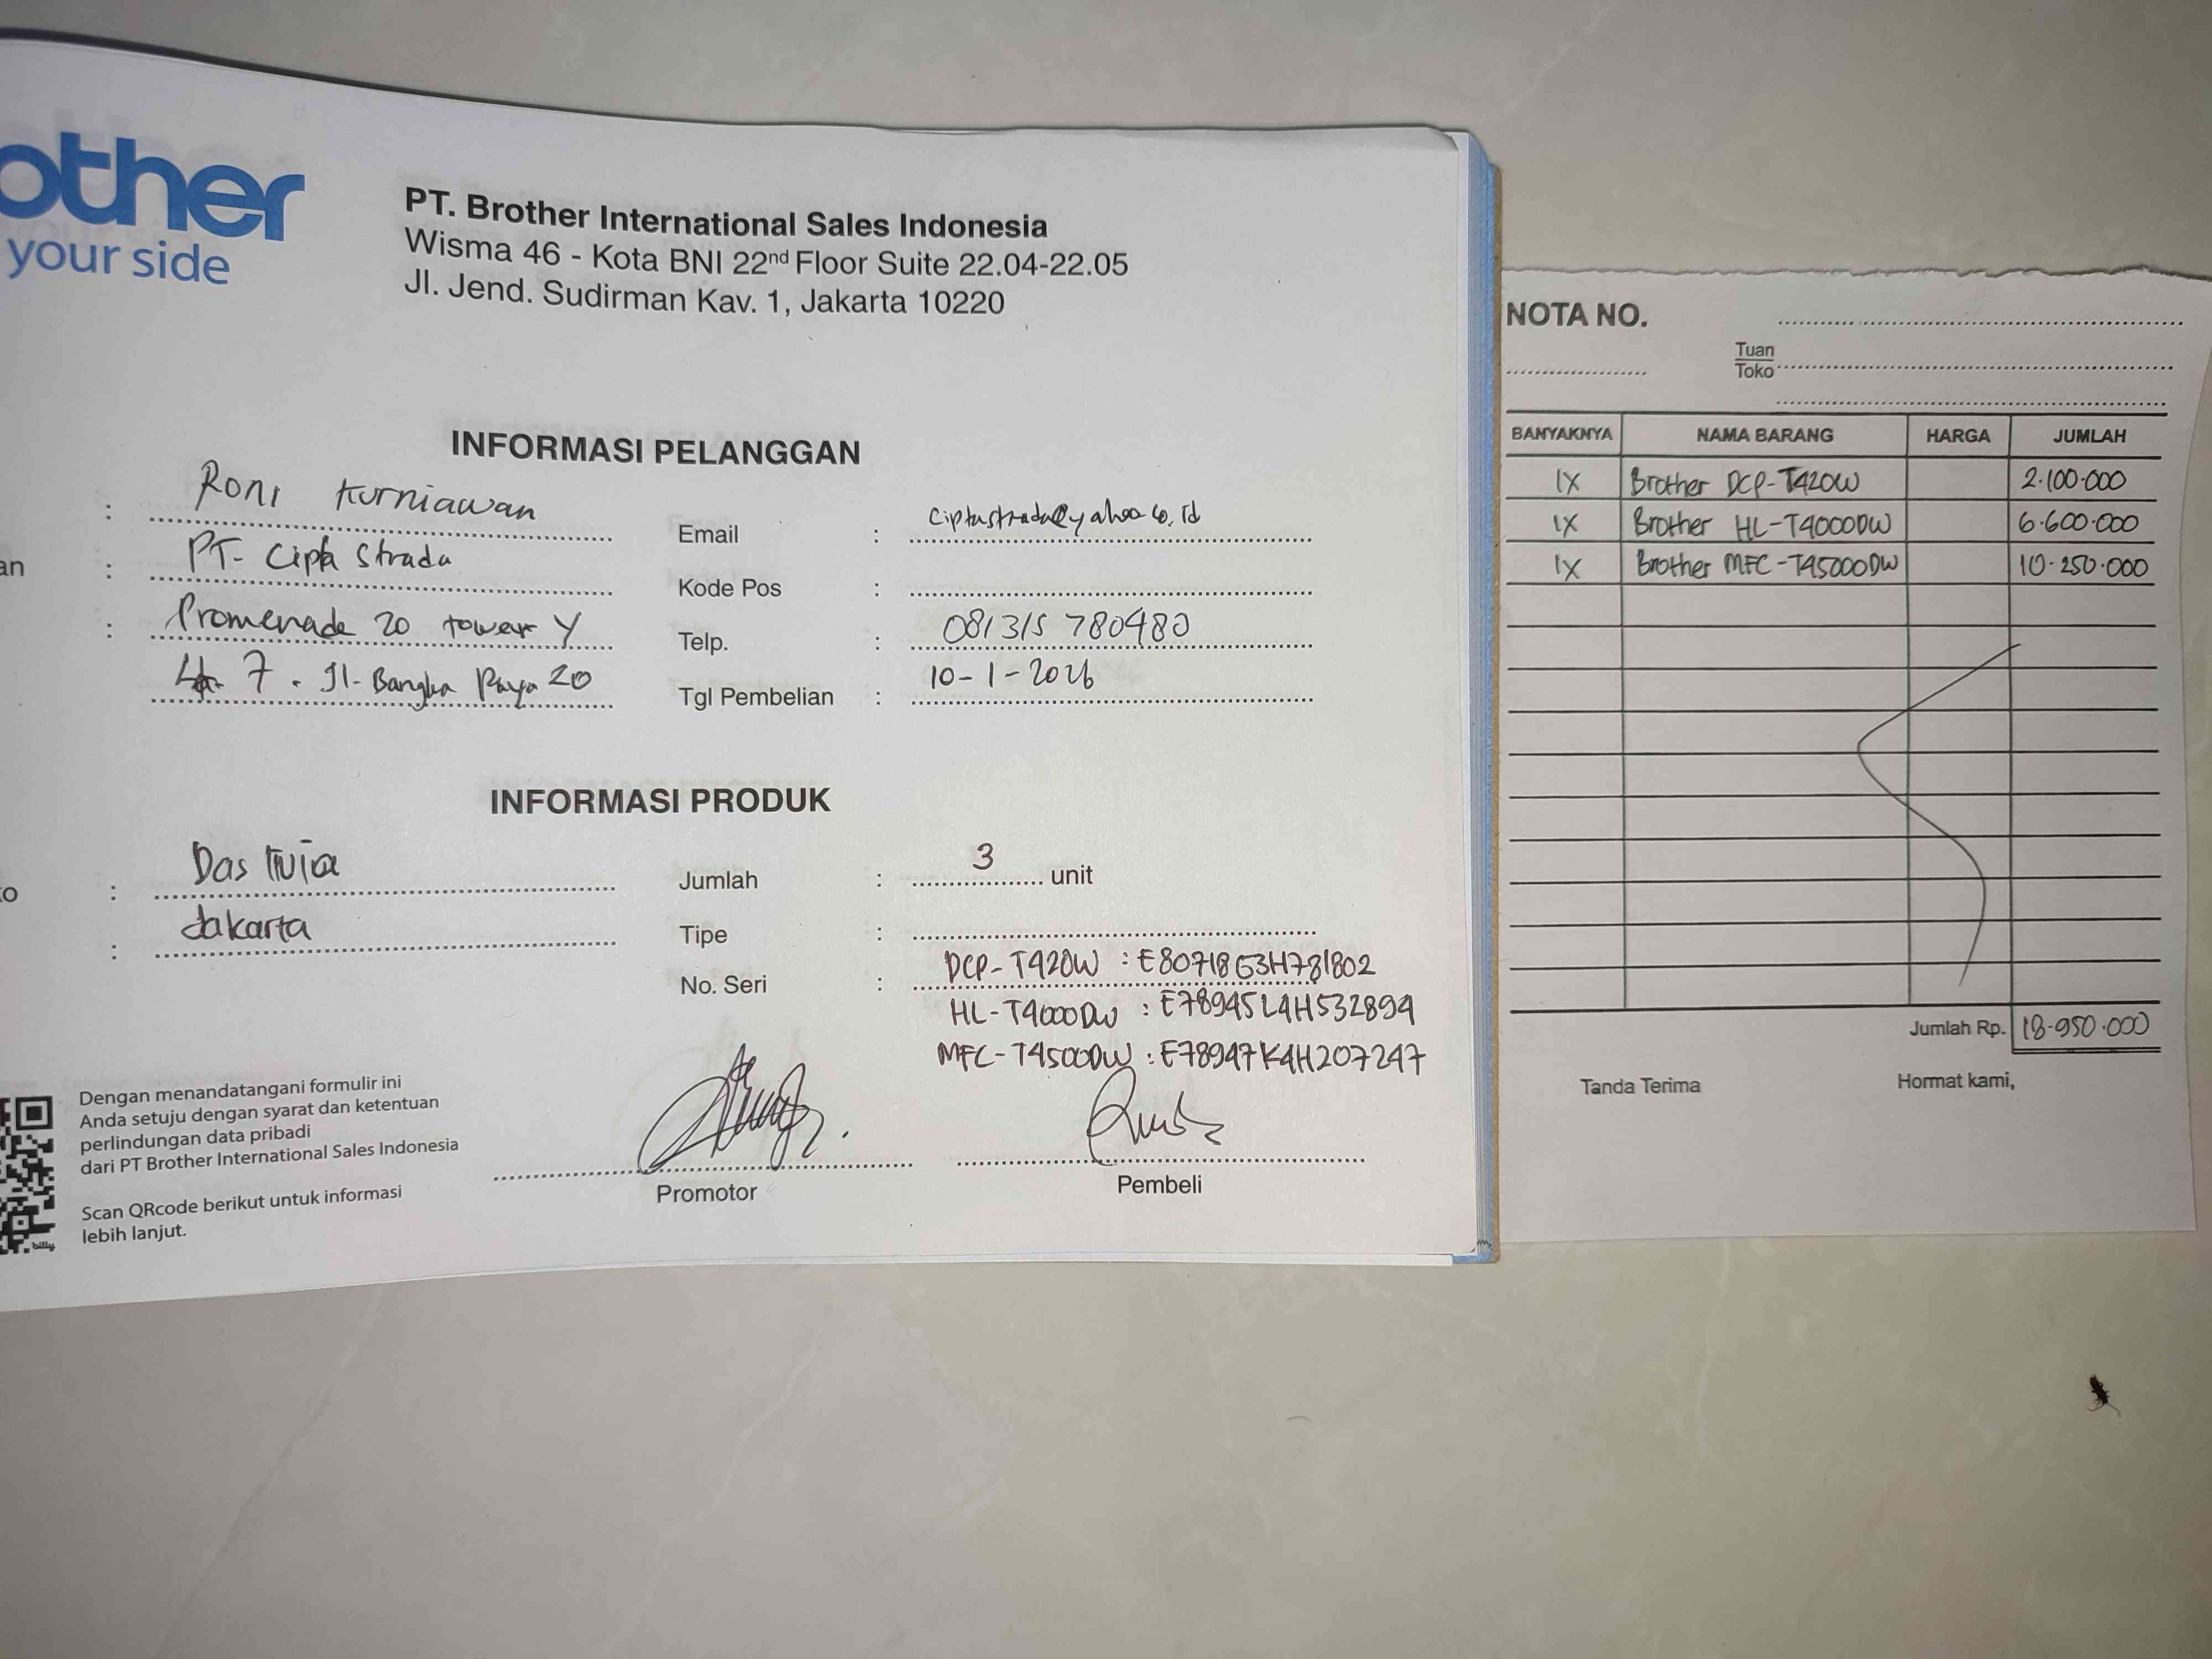 other
your side
PT. Brother International Sales Indonesia
Wisma 46 - Kota BNI 22nd Floor Suite 22.04-22.05
Jl. Jend. Sudirman Kav. 1, Jakarta 10220
INFORMASI PELANGGAN
: Roni Kurniawan
Email : Ciptastrada@yahoo.co.id
an : PT. Cipta Strada
Kode Pos :
: Promenade 20 tower Y
Telp. : 081315 780480
7. Jl. Bangka Raya 20
Tgl Pembelian : 10-1-2026
INFORMASI PRODUK
o : Das
Jumlah : 3 unit
: Jakarta
Tipe :
No. Seri : DCP-T420W : E80718G3H781802
HL-T4000DW : E78945L4H532894
MFC-T4500DW : E78947K4H207247
Dengan menandatangani formulir ini
Anda setuju dengan syarat dan ketentuan
perlindungan data pribadi
dari PT Brother International Sales Indonesia
Scan QRcode berikut untuk informasi
lebih lanjut.
billy
Promotor
Pembeli
NOTA NO.
Tuan
Toko
BANYAKNYA NAMA BARANG HARGA JUMLAH
1X Brother DCP-T420W 2.100.000
1X Brother HL-T4000DW 6.600.000
1X Brother MFC-T45000DW 10.250.000
Jumlah Rp. 18.950.000
Tanda Terima Hormat kami,